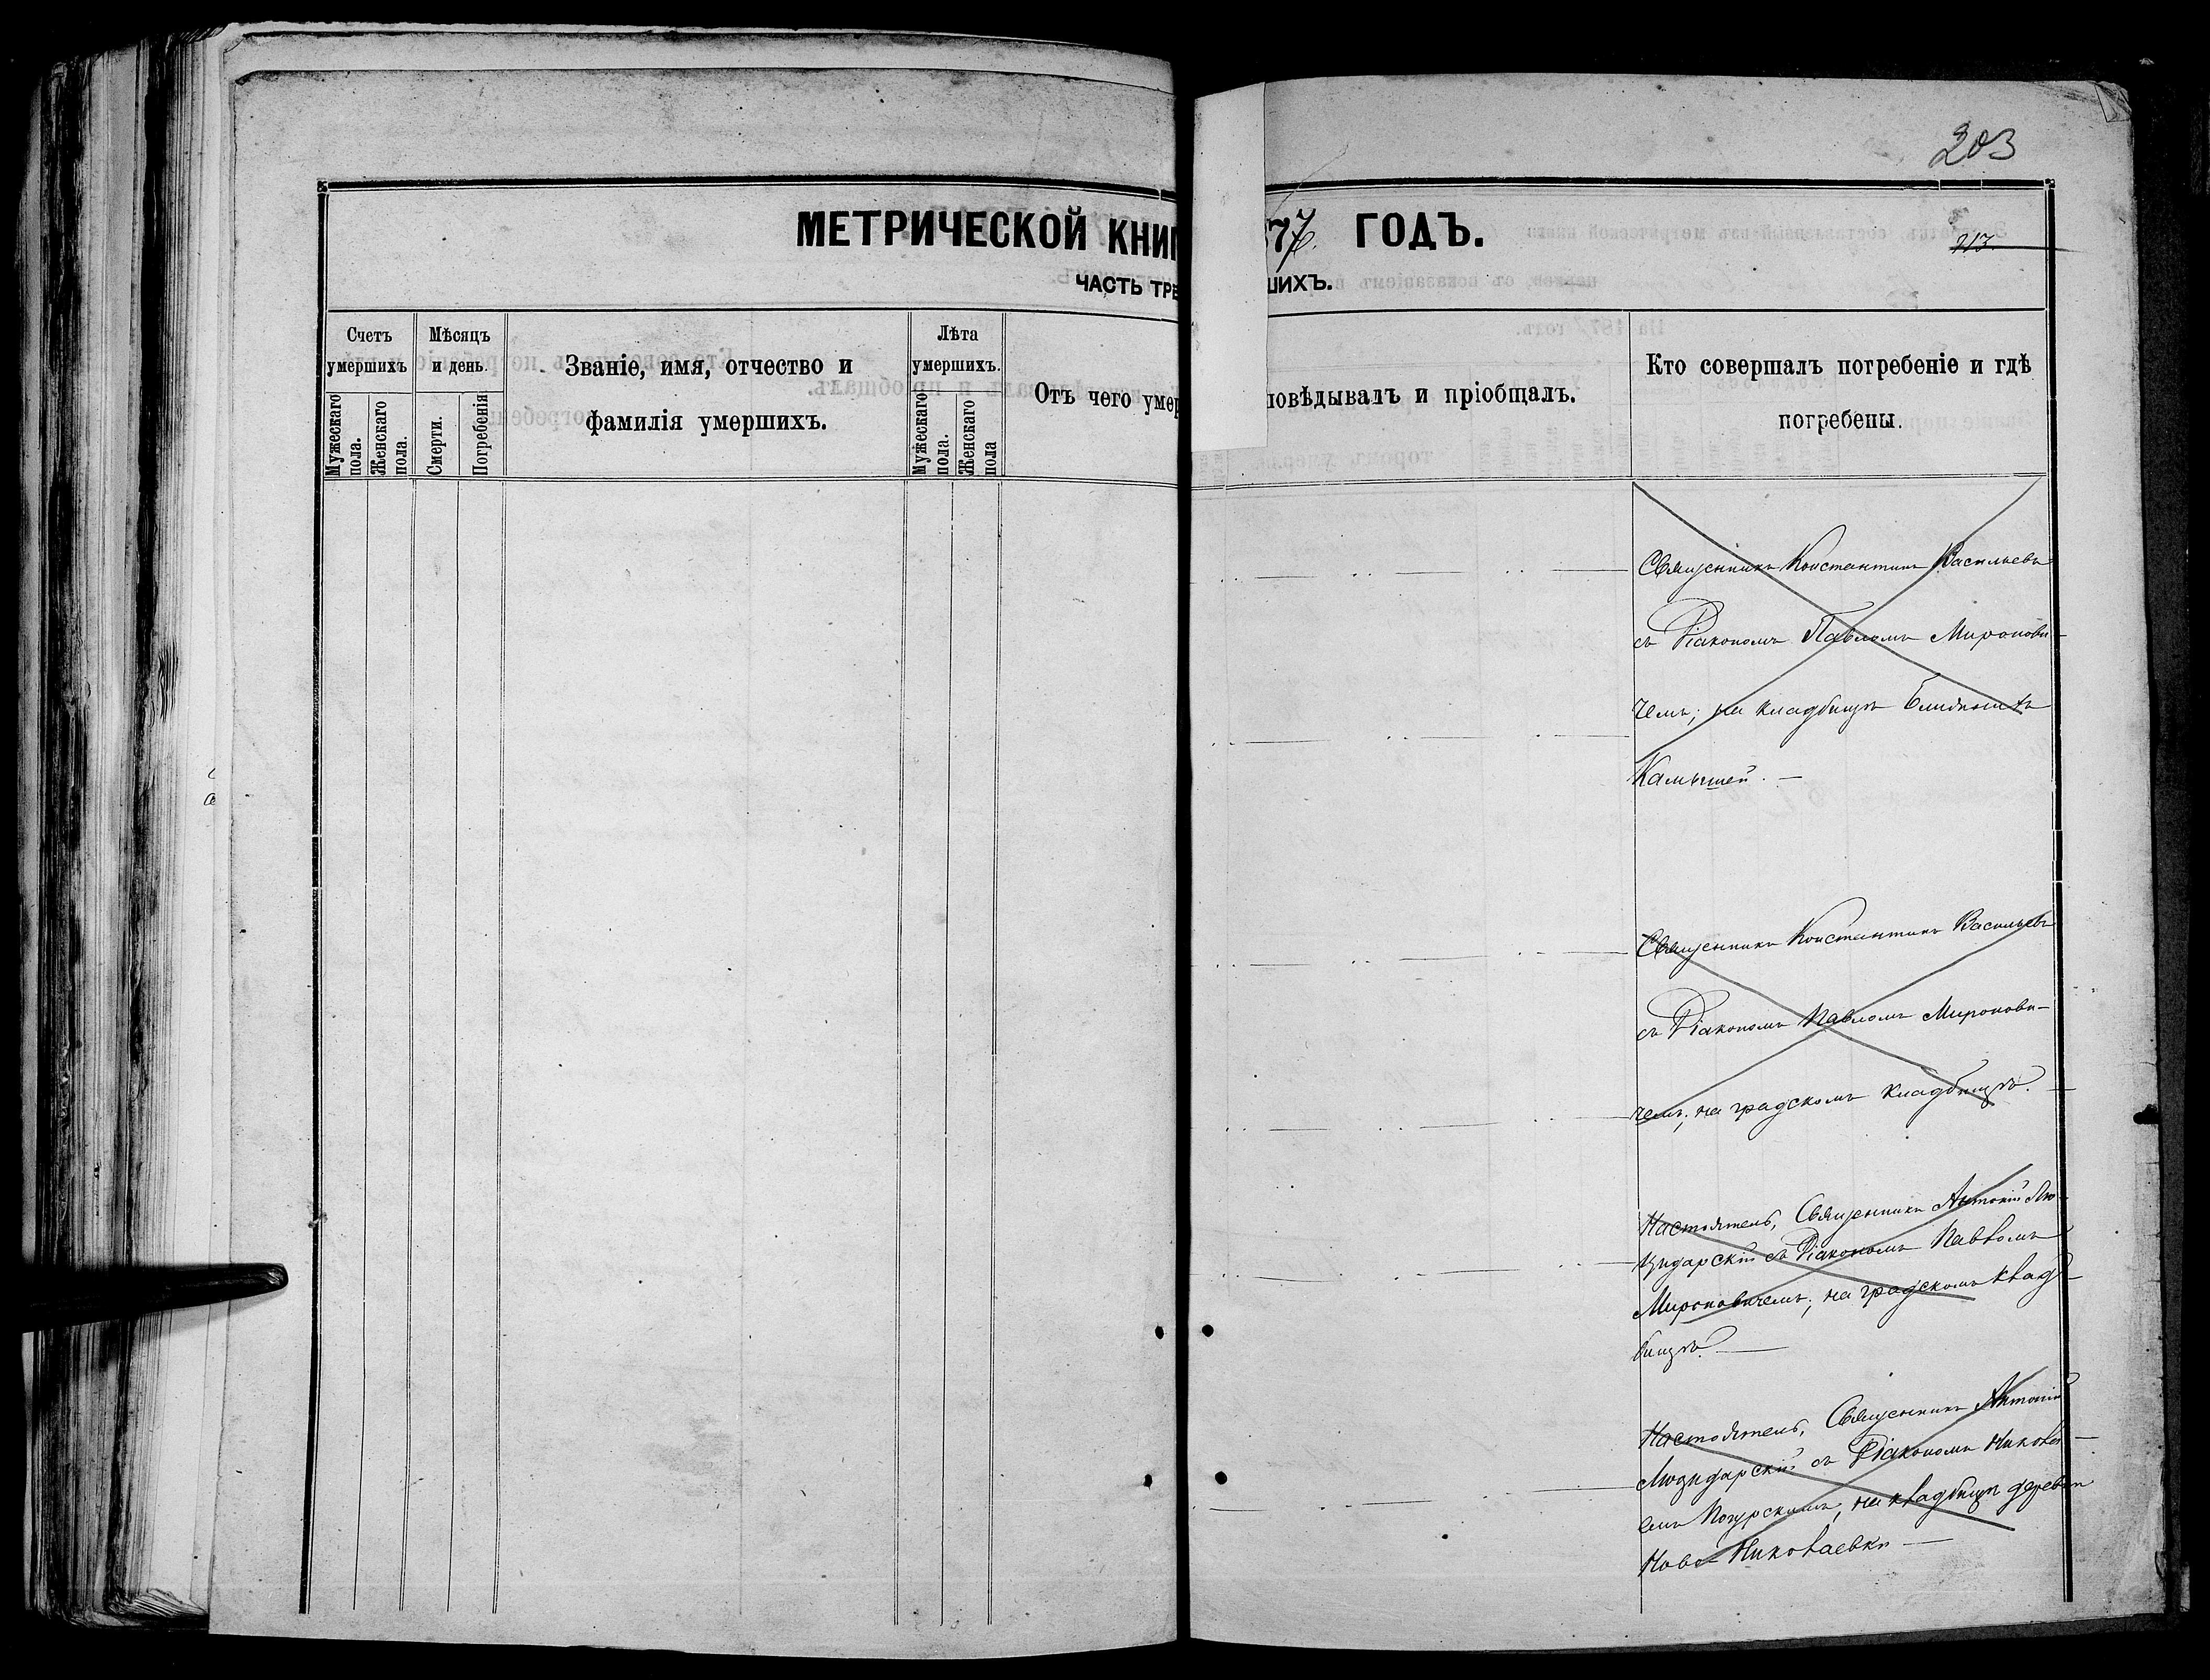 203
МЕТРИЧЕСКОЙ КНИГ
77. ГОДЪ.
213
ЧАСТЬ ТРЕ
ШИХЪ.
Счетъ умершихъ
Мужескаго пола.
Женскаго пола.
Мѣсяцъ и день.
Смерти.
Погребенія
Званіе, имя, отчество и
фамилія умершихъ.
Лѣта умершихъ.
Мужескаго пола.
Женскаго пола
Отъ чего умер
повѣдывалъ и пріобщалъ.
Кто совершалъ погребеніе и гдѣ
погребены.
Священникъ Константинъ Васильевъ
съ Діакономъ Павломъ Миронови-
чемъ; на кладбищѣ Ближнихъ
Камышей. —
Священникъ Константинъ Васильевъ
съ Діакономъ Павломъ Миронови-
чемъ; на градскомъ кладбищѣ. —
Настоятель, Священникъ Антоній
съ Діакономъ Павломъ
Мироновичемъ; на градскомъ клад-
бищѣ. —
Настоятель, Священникъ Антоній
съ Діакономъ Никола-
емъ на кладбищѣ деревни
Ново-Николаевки —